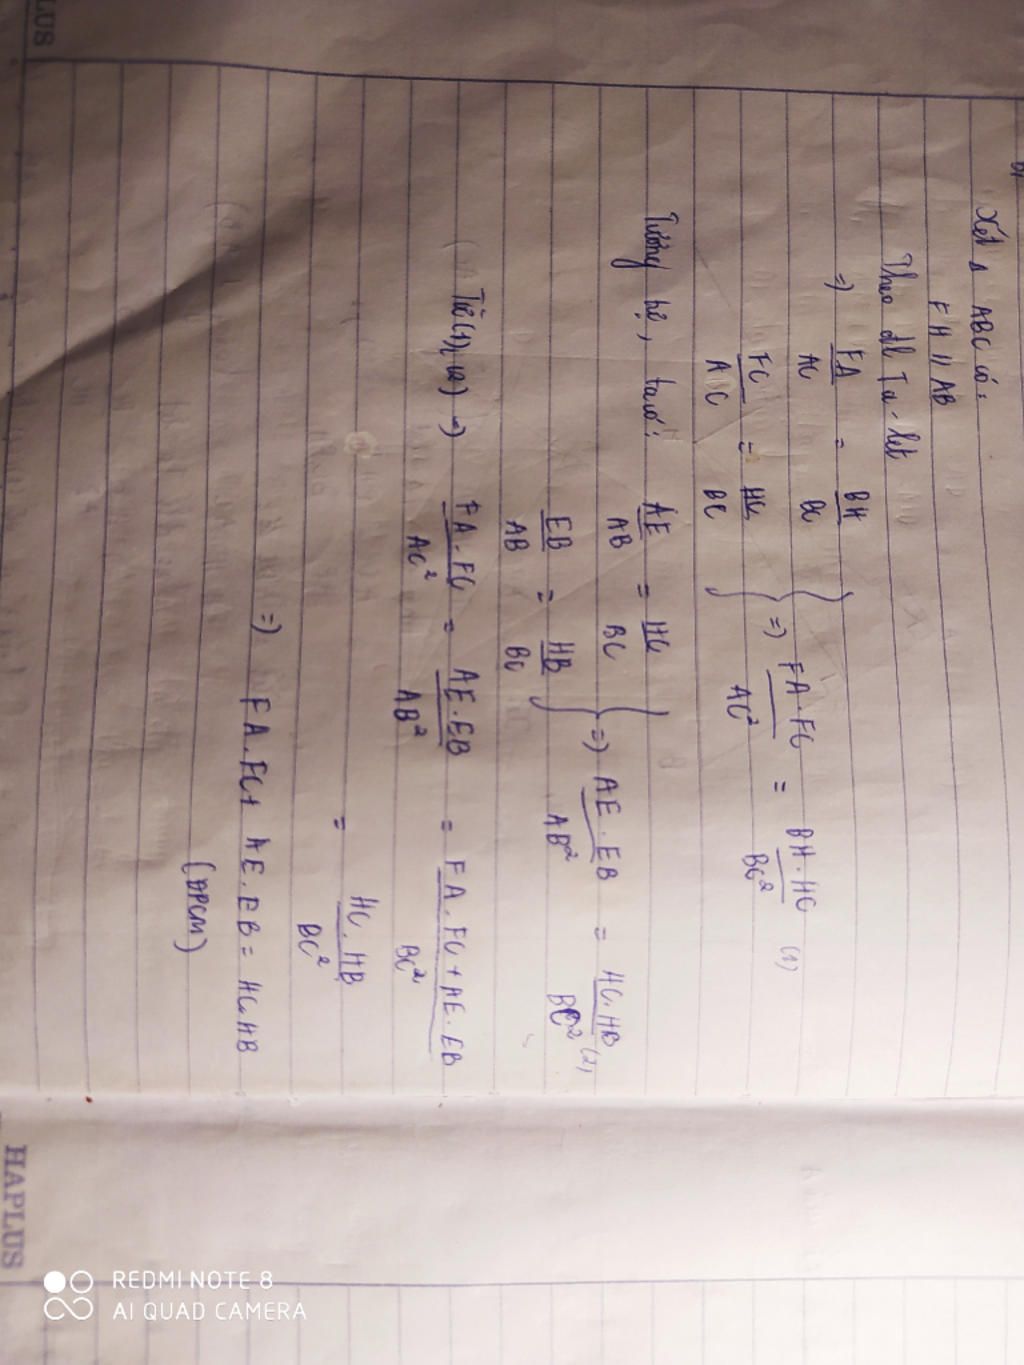 b,
Xét Δ ABC có:
FH // AB
Theo đl Ta-lét
=) FA/AC = BH/BC
FC/AC = HC/BC
=) FA.FC/AC² = BH.HC/BC² (1)
Tương tự, ta có: AE/AB = HC/BC
EB/AB = HB/BC
=) AE.EB/AB² = HC.HB/BC² (2)
Từ (1), (2) =) FA.FC/AC² = AE.EB/AB² = FA.FC+AE.EB/BC²
= HC.HB/BC²
=) FA.FC+ AE.EB = HC.HB
(ĐPCM)
PLUS
HAPLUS
REDMI NOTE 8
AI QUAD CAMERA